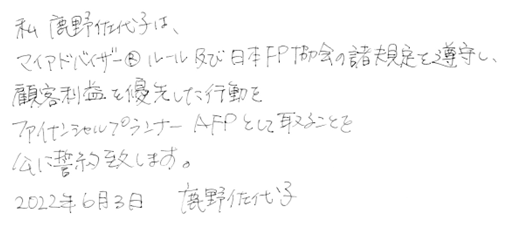 私 鹿野佐代子は、
マイアドバイザー® ルール及び日本FP協会の諸規定を遵守し、
顧客利益を優先した行動を
ファイナンシャルプランナー AFPとして取ることを
公に誓約致します。
2022年6月3日 鹿野佐代子